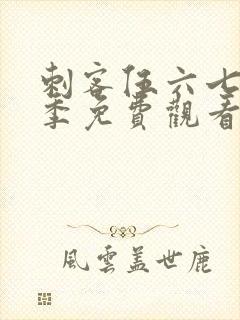 刺客伍六七
季免費觀看
風雲蓋世鹿